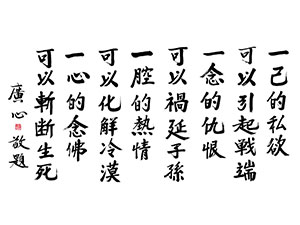 一己的私欲
可以引起戰端
一念的仇恨
可以禍延子孫
一腔的熱情
可以化解冷漠
一心的念佛
可以斬断生死
廣心敬題